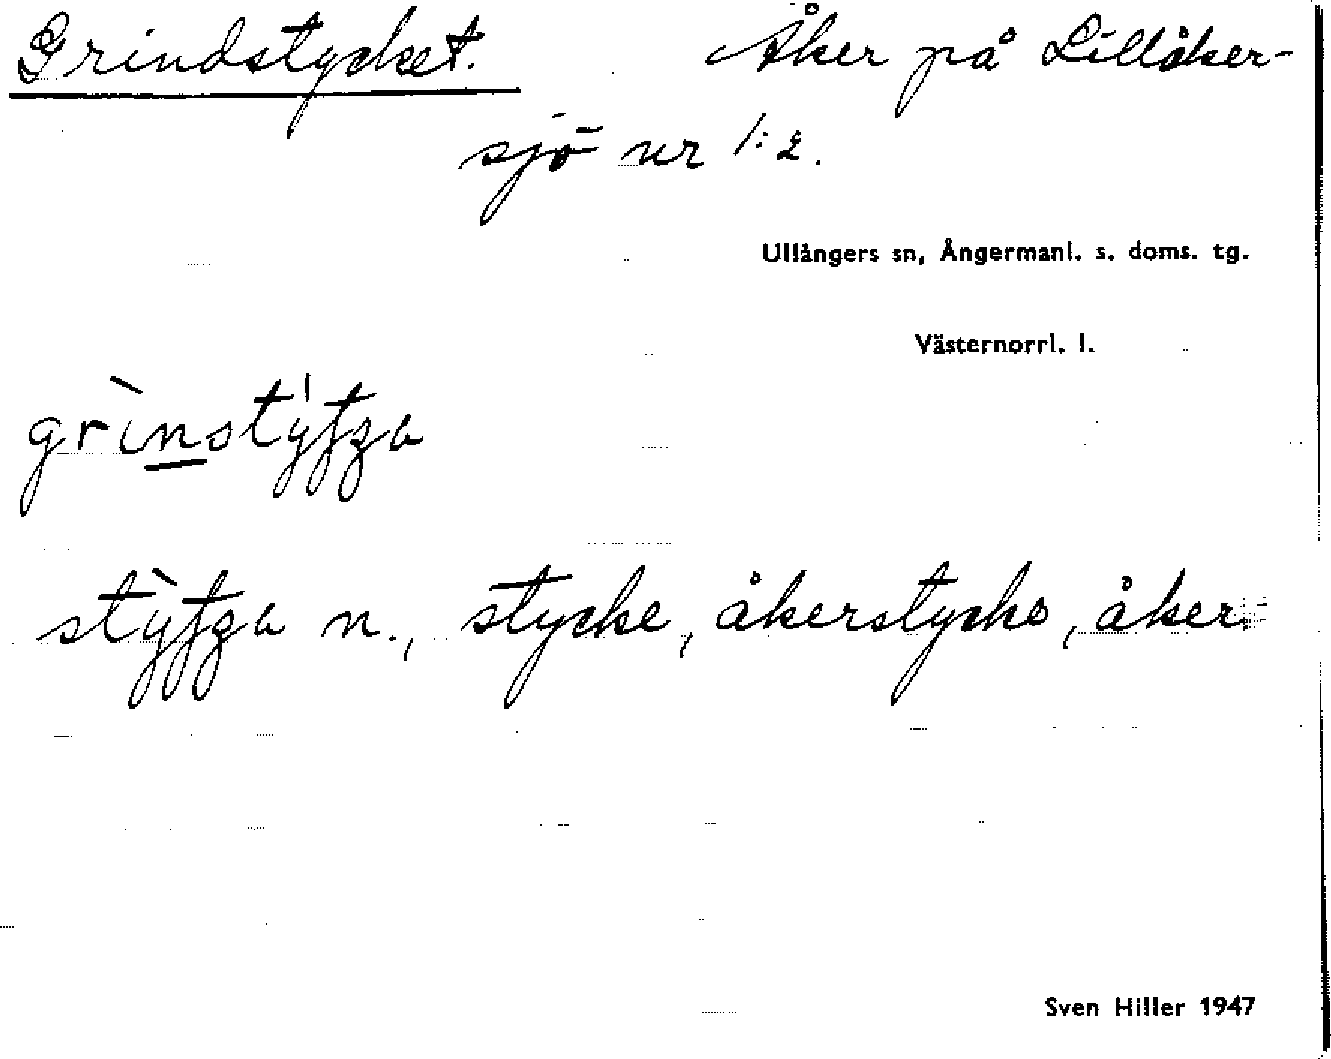 Grindstycket. Åker på Lillåker-
sjö nr 1:2.
Ullångers sn, Ångermanl. s. doms. tg.
Västernorrl. l.
grìnstýtʒa
stỳtʒa n., stycke, åkerstycke, åker.
Sven Hiller 1947